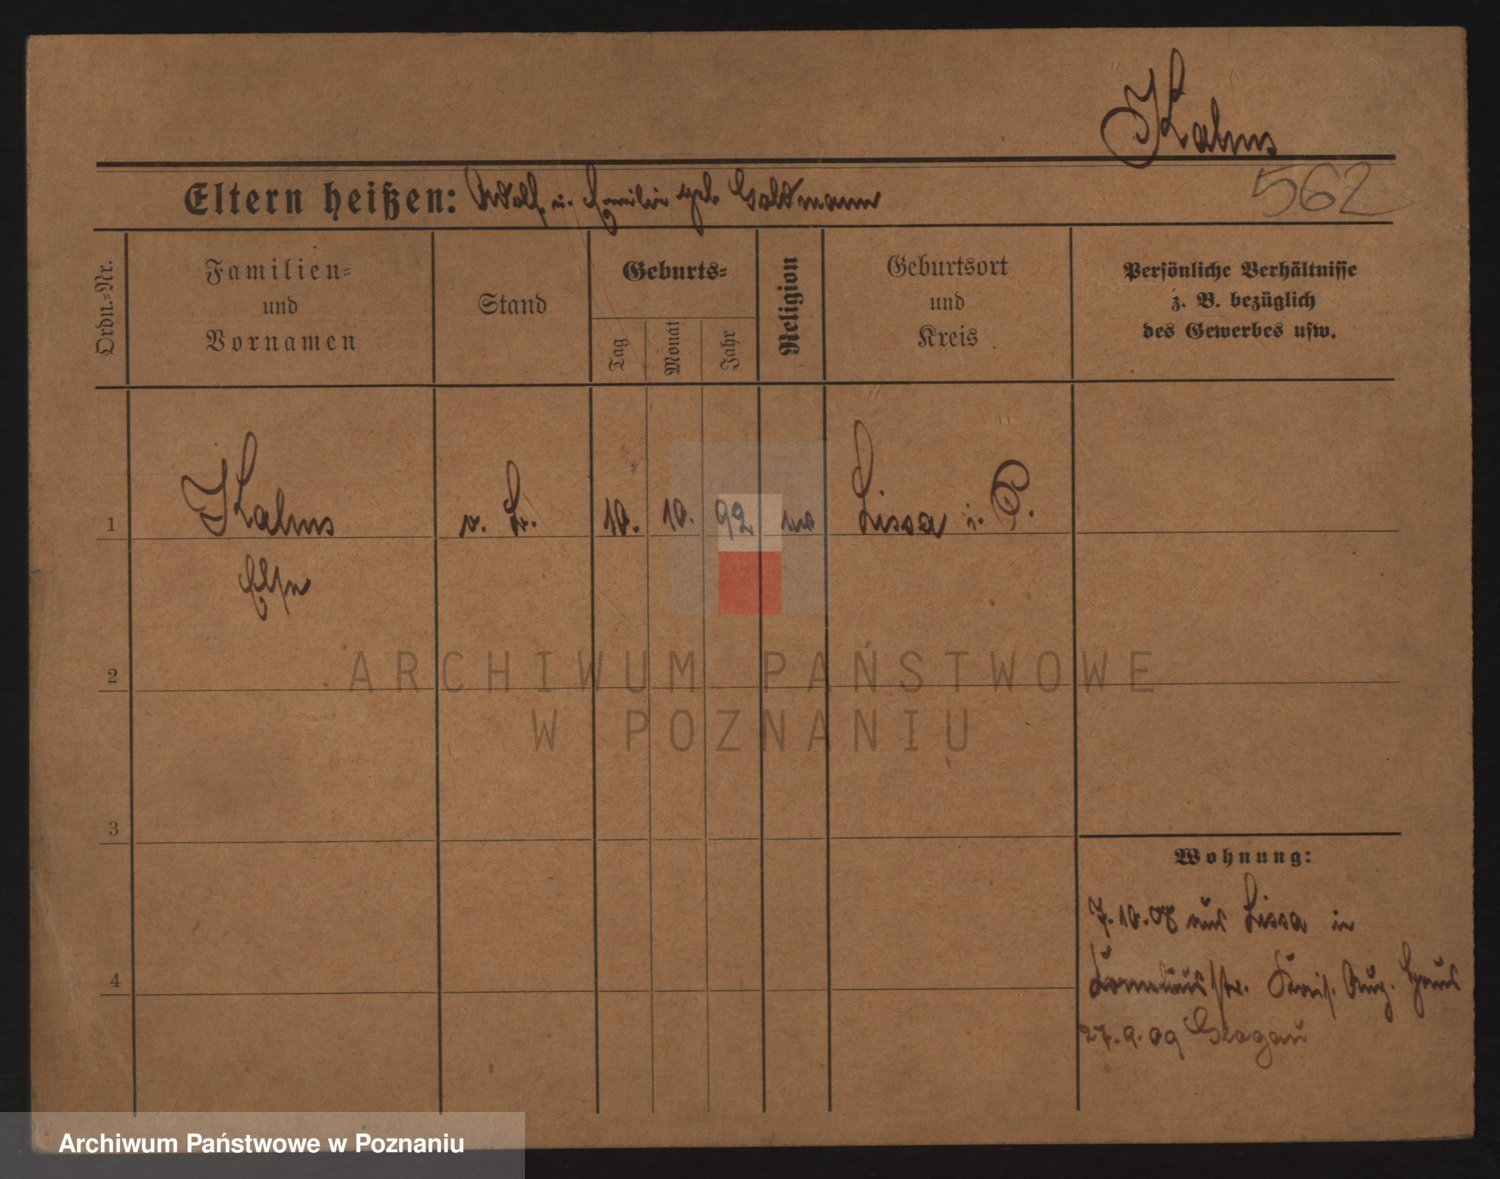 Kalms
Eltern heißen: Adolf u. Emilie geb. Goldmann
562
Ordn.-Nr.
Familien-
und
Vornamen
Stand
Geburts-
Tag
Monat
Jahr
Religion
Geburtsort
und
Kreis
Persönliche Verhältnisse
z. B. bezüglich
des Gewerbes usw.
1 Kalms 10. 10. 92 Lissa i. P.
Else
2
3
4
Wohnung:
7.10.08 aus Lissa in
Aug. Haus
27.9.09 Glogau
ARCHIWUM PAŃSTWOWE
W POZNANIU
Archiwum Państwowe w Poznaniu